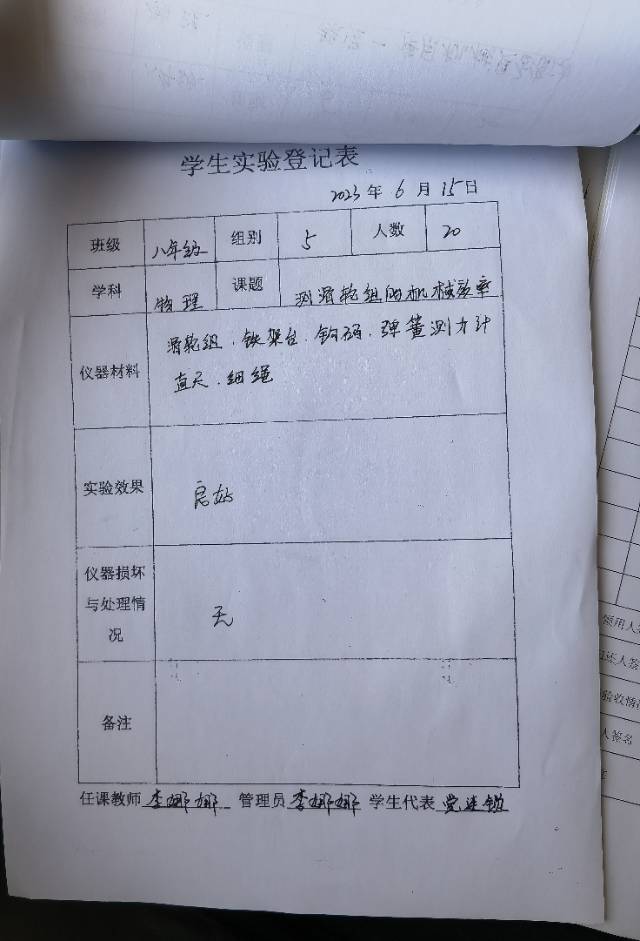 学生实验登记表
2023年6月15日
班级 八年级 组别 5 人数 20
学科 物理 课题 测滑轮组的机械效率
仪器材料 滑轮组．铁架台．钩码．弹簧测力计
直尺．细绳
实验效果 良好
仪器损坏
与处理情
况
无
备注
任课教师 李娜娜 管理员 李娜娜 学生代表
领用人签
归还人签
验收情
人签名